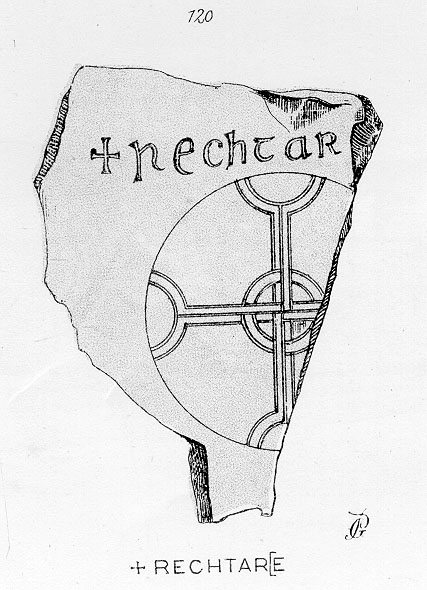 120
+ rechtaR
+ RECHTAR[E